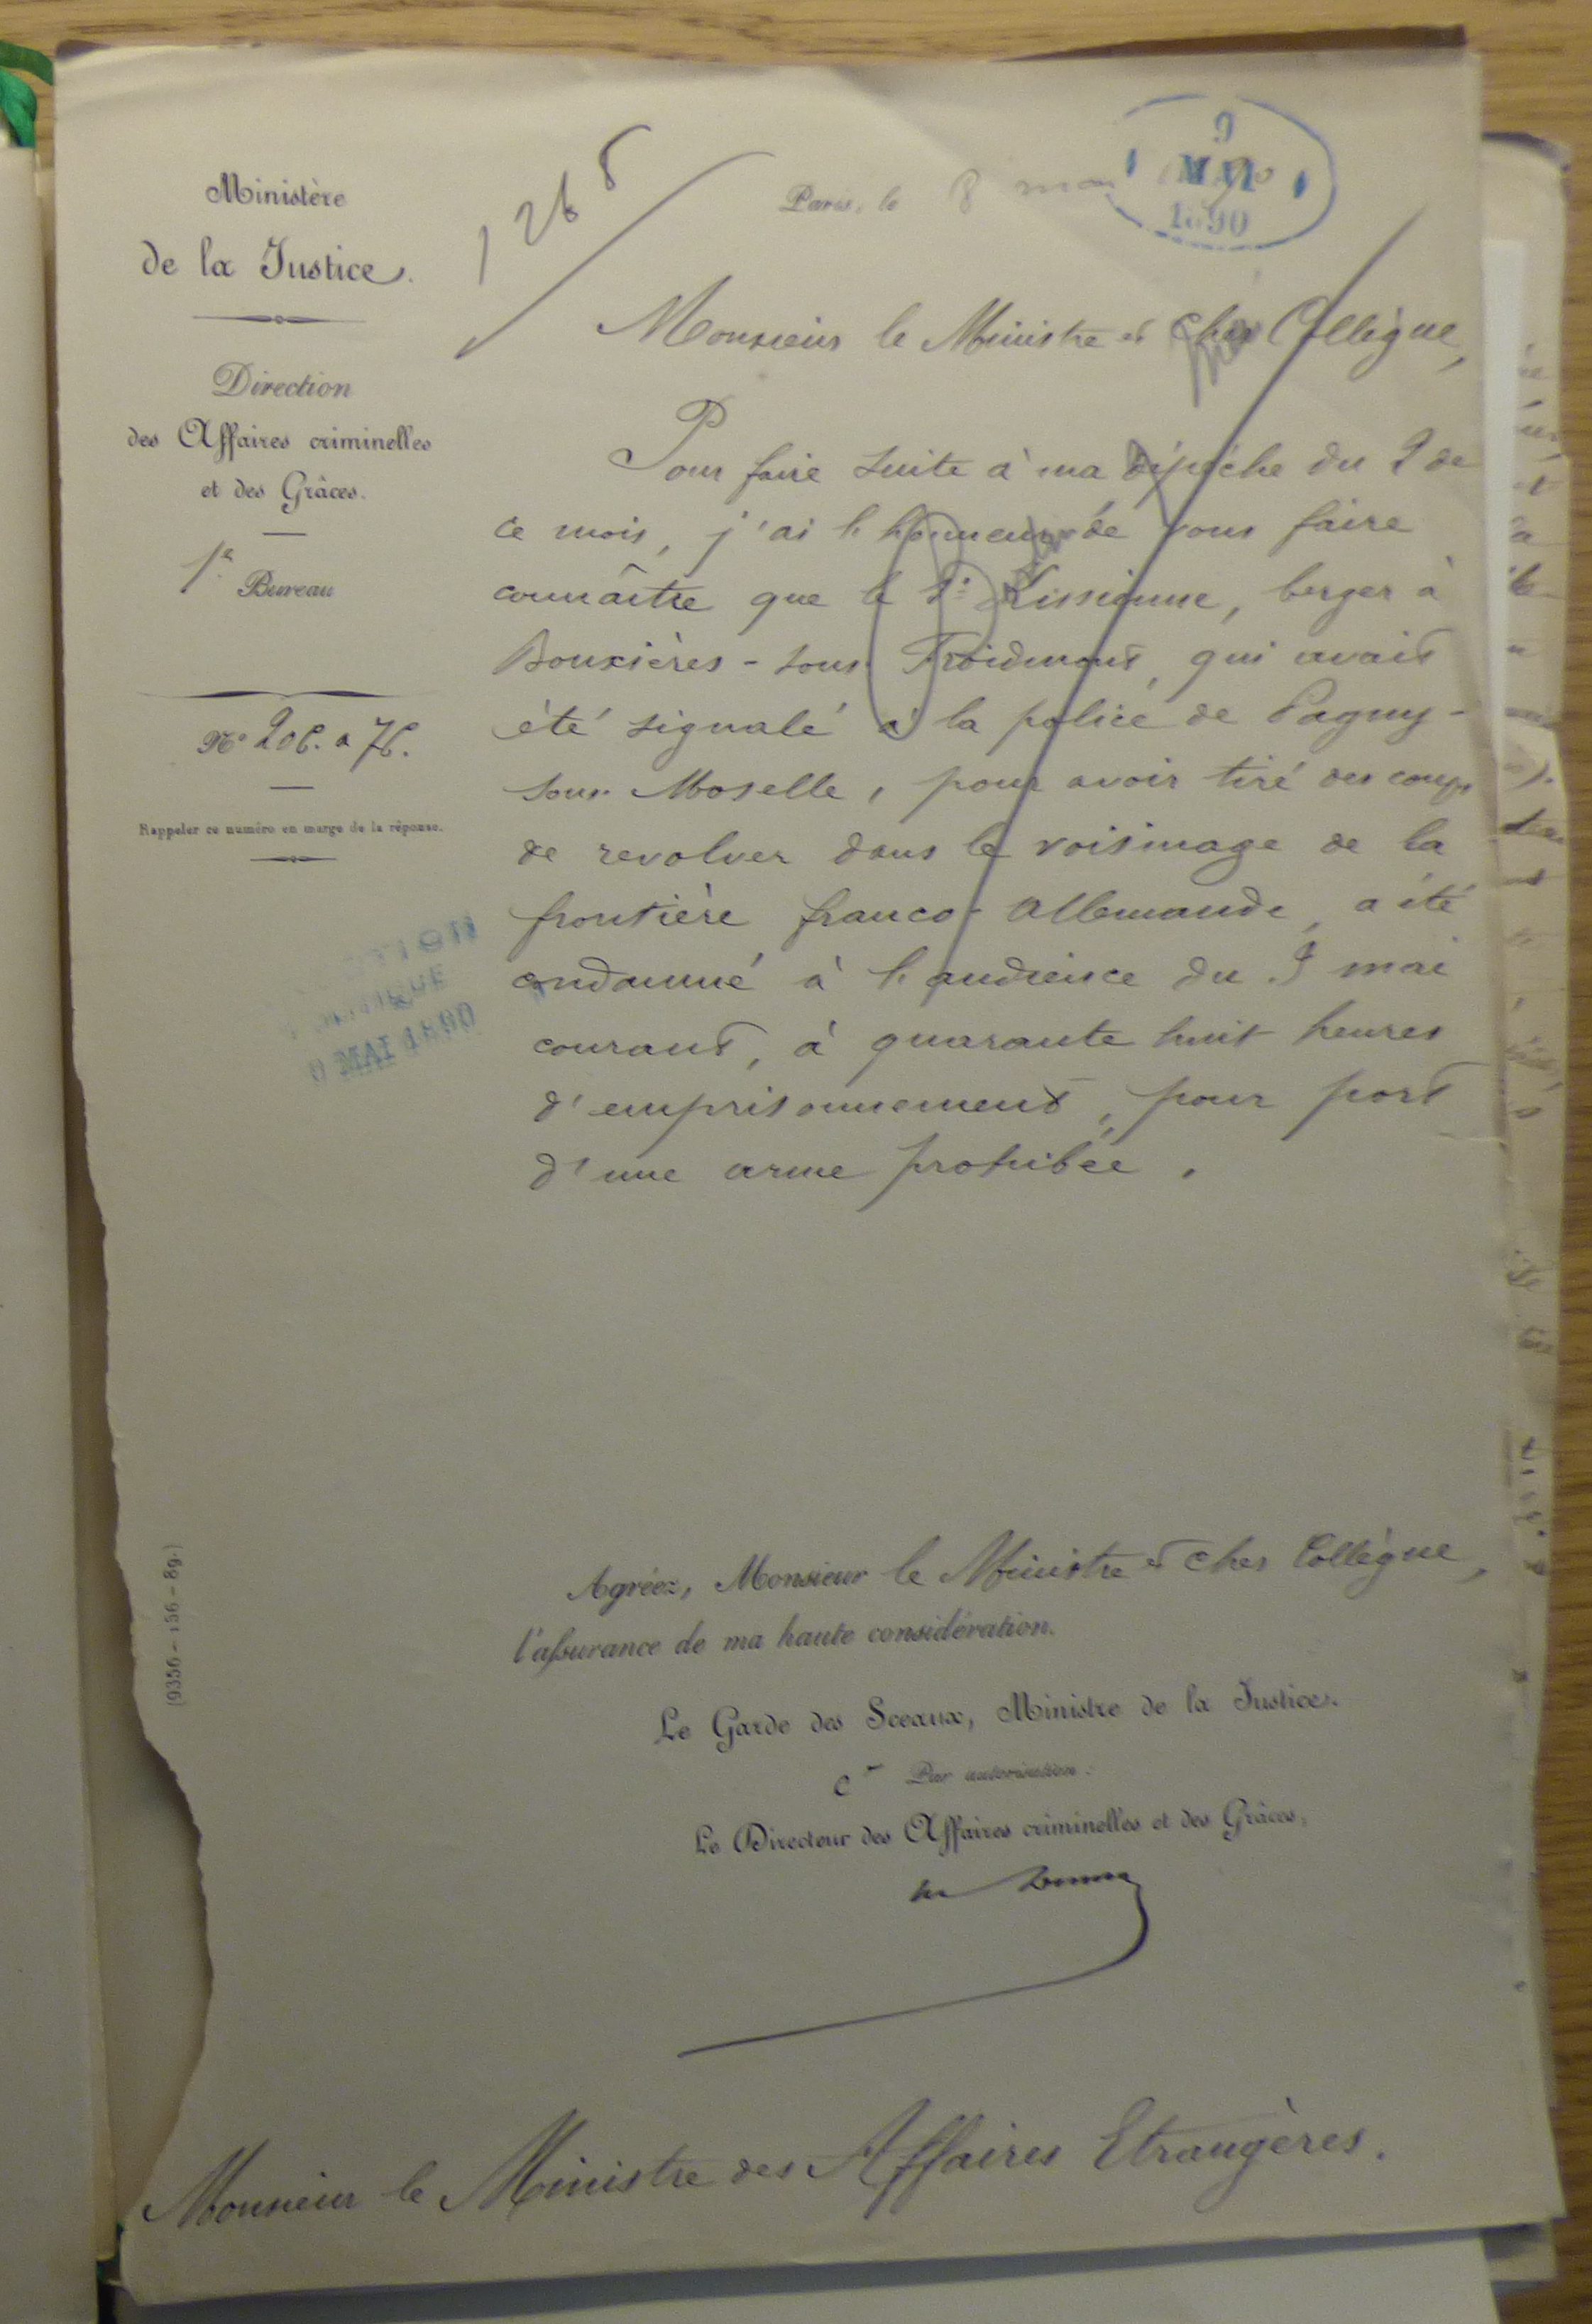 Ministère
de la Justice.
Direction
des Affaires criminelles
et des Grâces.
1er Bureau
N° 206. a 76.
Rappeler ce numéro en marge de la réponse.
MAI 1890
(9356-156-89.)
1268
Paris, le 8 mai 90
9
MAI
1890
Monsieur le Ministre et Cher Collègue,
Pour faire suite à ma dépêche du 2 de
ce mois, j'ai l'honneur de vous faire
connaître que le Sr Kissienne, berger à
Bouxières-sous-Froidmont, qui avait
été signalé à la police de Pagny-
sous-Moselle, pour avoir tiré des coups
de revolver dans le voisinage de la
frontière franco-allemande, a été
condamné à l'audience du mai
courant, à quarante huit heures
d'emprisonnement, pour port
d'une arme prohibée.
Agréez, Monsieur le Ministre et Cher Collègue,
l'assurance de ma haute considération.
Le Garde des Sceaux, Ministre de la Justice.
Par autorisation :
Le Directeur des Affaires criminelles et des Grâces,
Monsieur le Ministre des Affaires Etrangères.